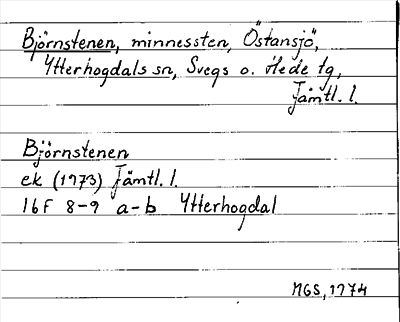 Björnstenen, minnessten, Östansjö,
Ytterhogdals sn, Svegs o. Hede tg,
Jämtl. l.
Björnstenen
ek (1973) Jämtl. l.
16F 8-9 a-b Ytterhogdal
MGS, 1974